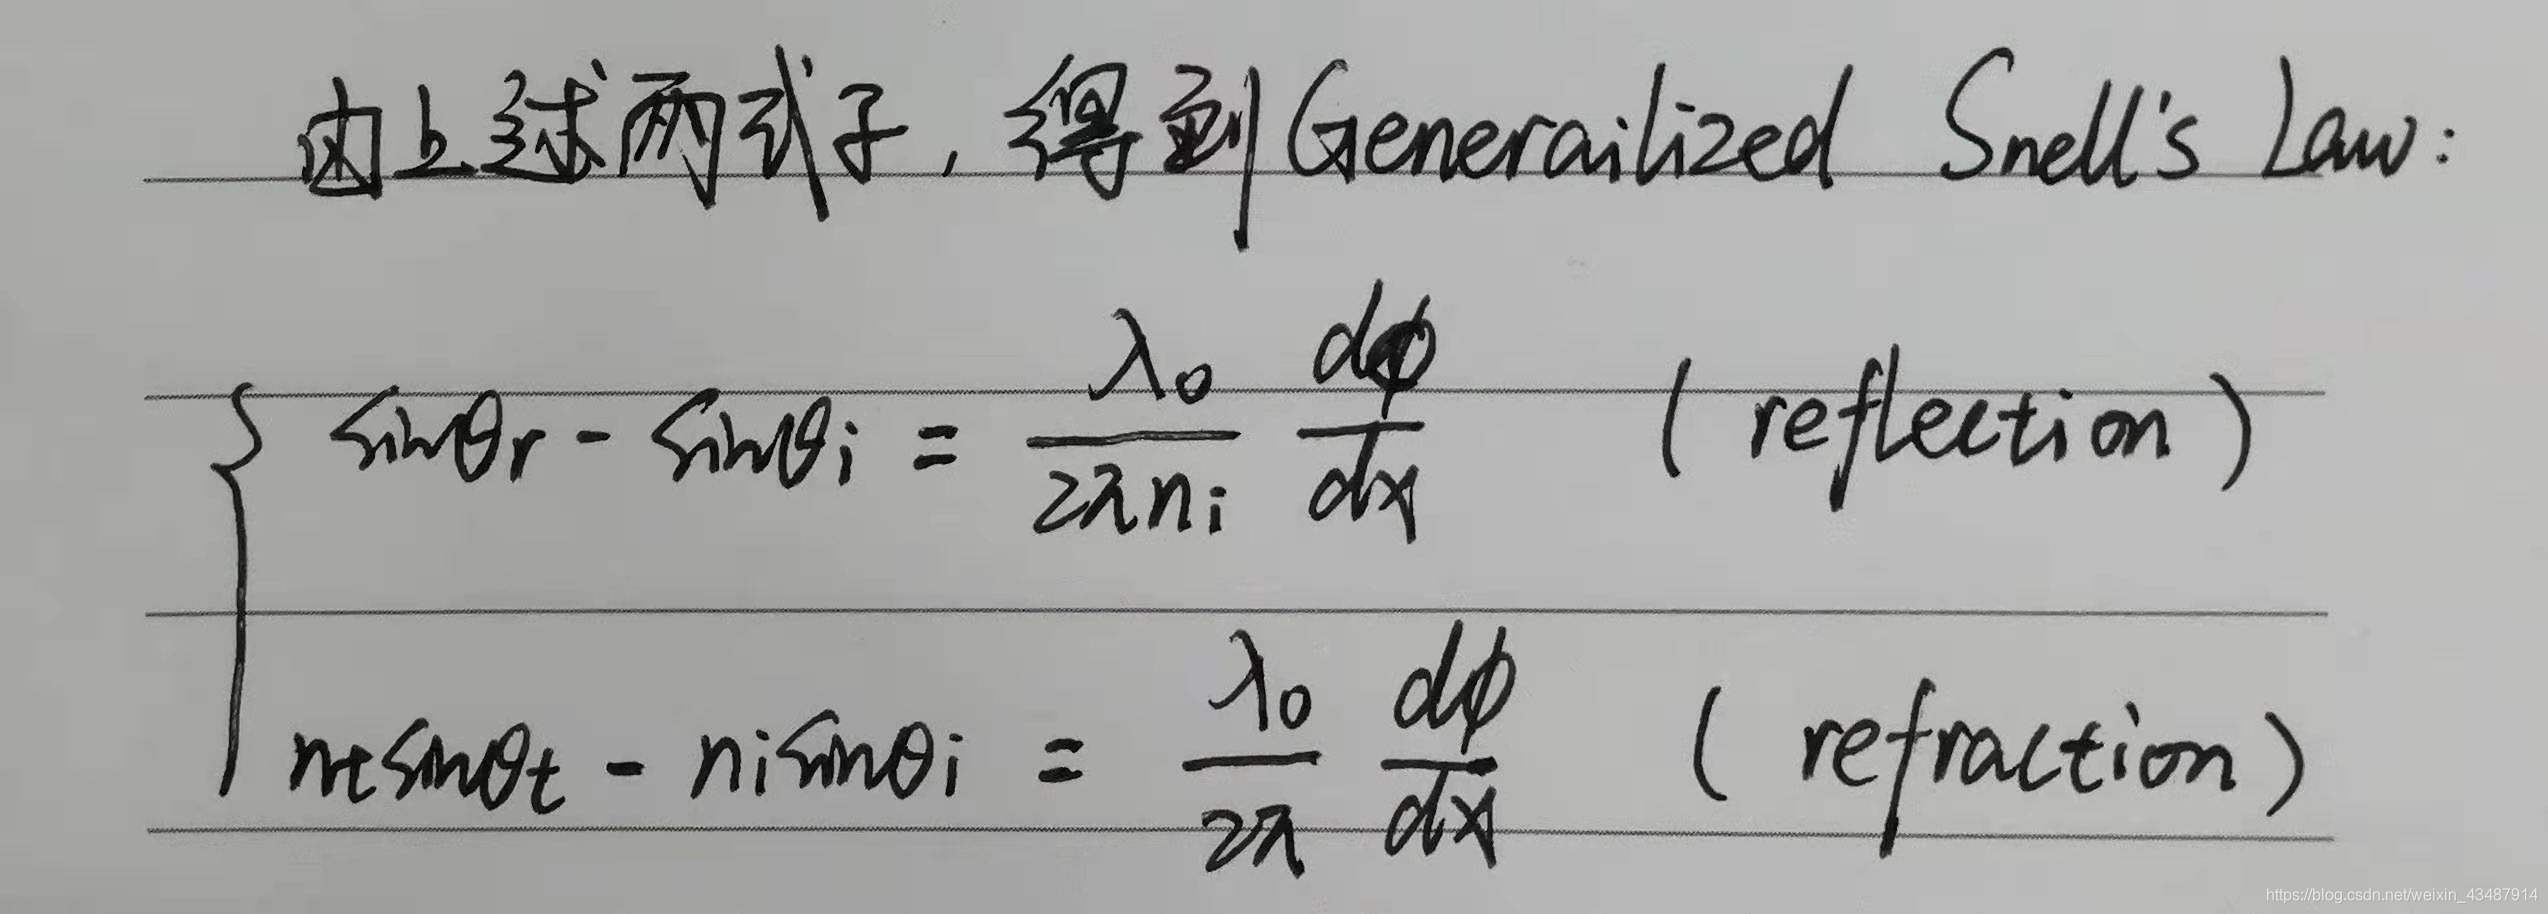 由上述两式子，得到Generailized Snell's Law:
sinθr - sinθi = λ0/(2πni) dϕ/dx (reflection)
ntsinθt - nisinθi = λ0/(2π) dϕ/dx (refraction)
https://blog.csdn.net/weixin_43487914